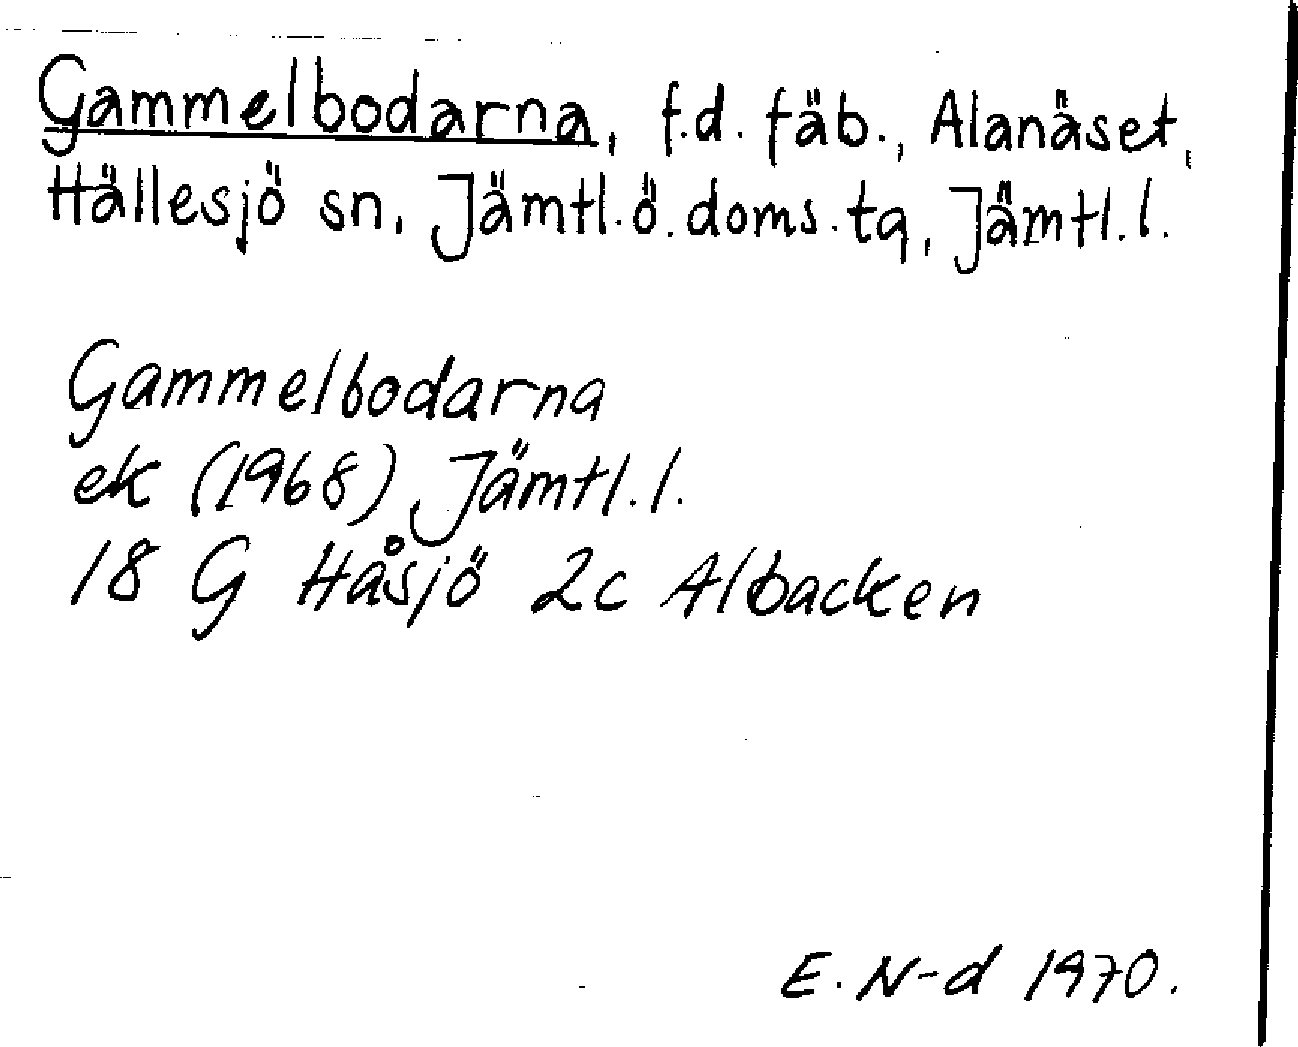 Gammelbodarna, f.d. fäb., Alanäset,
Hällesjö sn, Jämtl.ö.doms.tq, Jämtl.l.
Gammelbodarna
ek (1968) Jämtl.l.
18 G Håsjö 2c Albacken
E. N-d 1970.